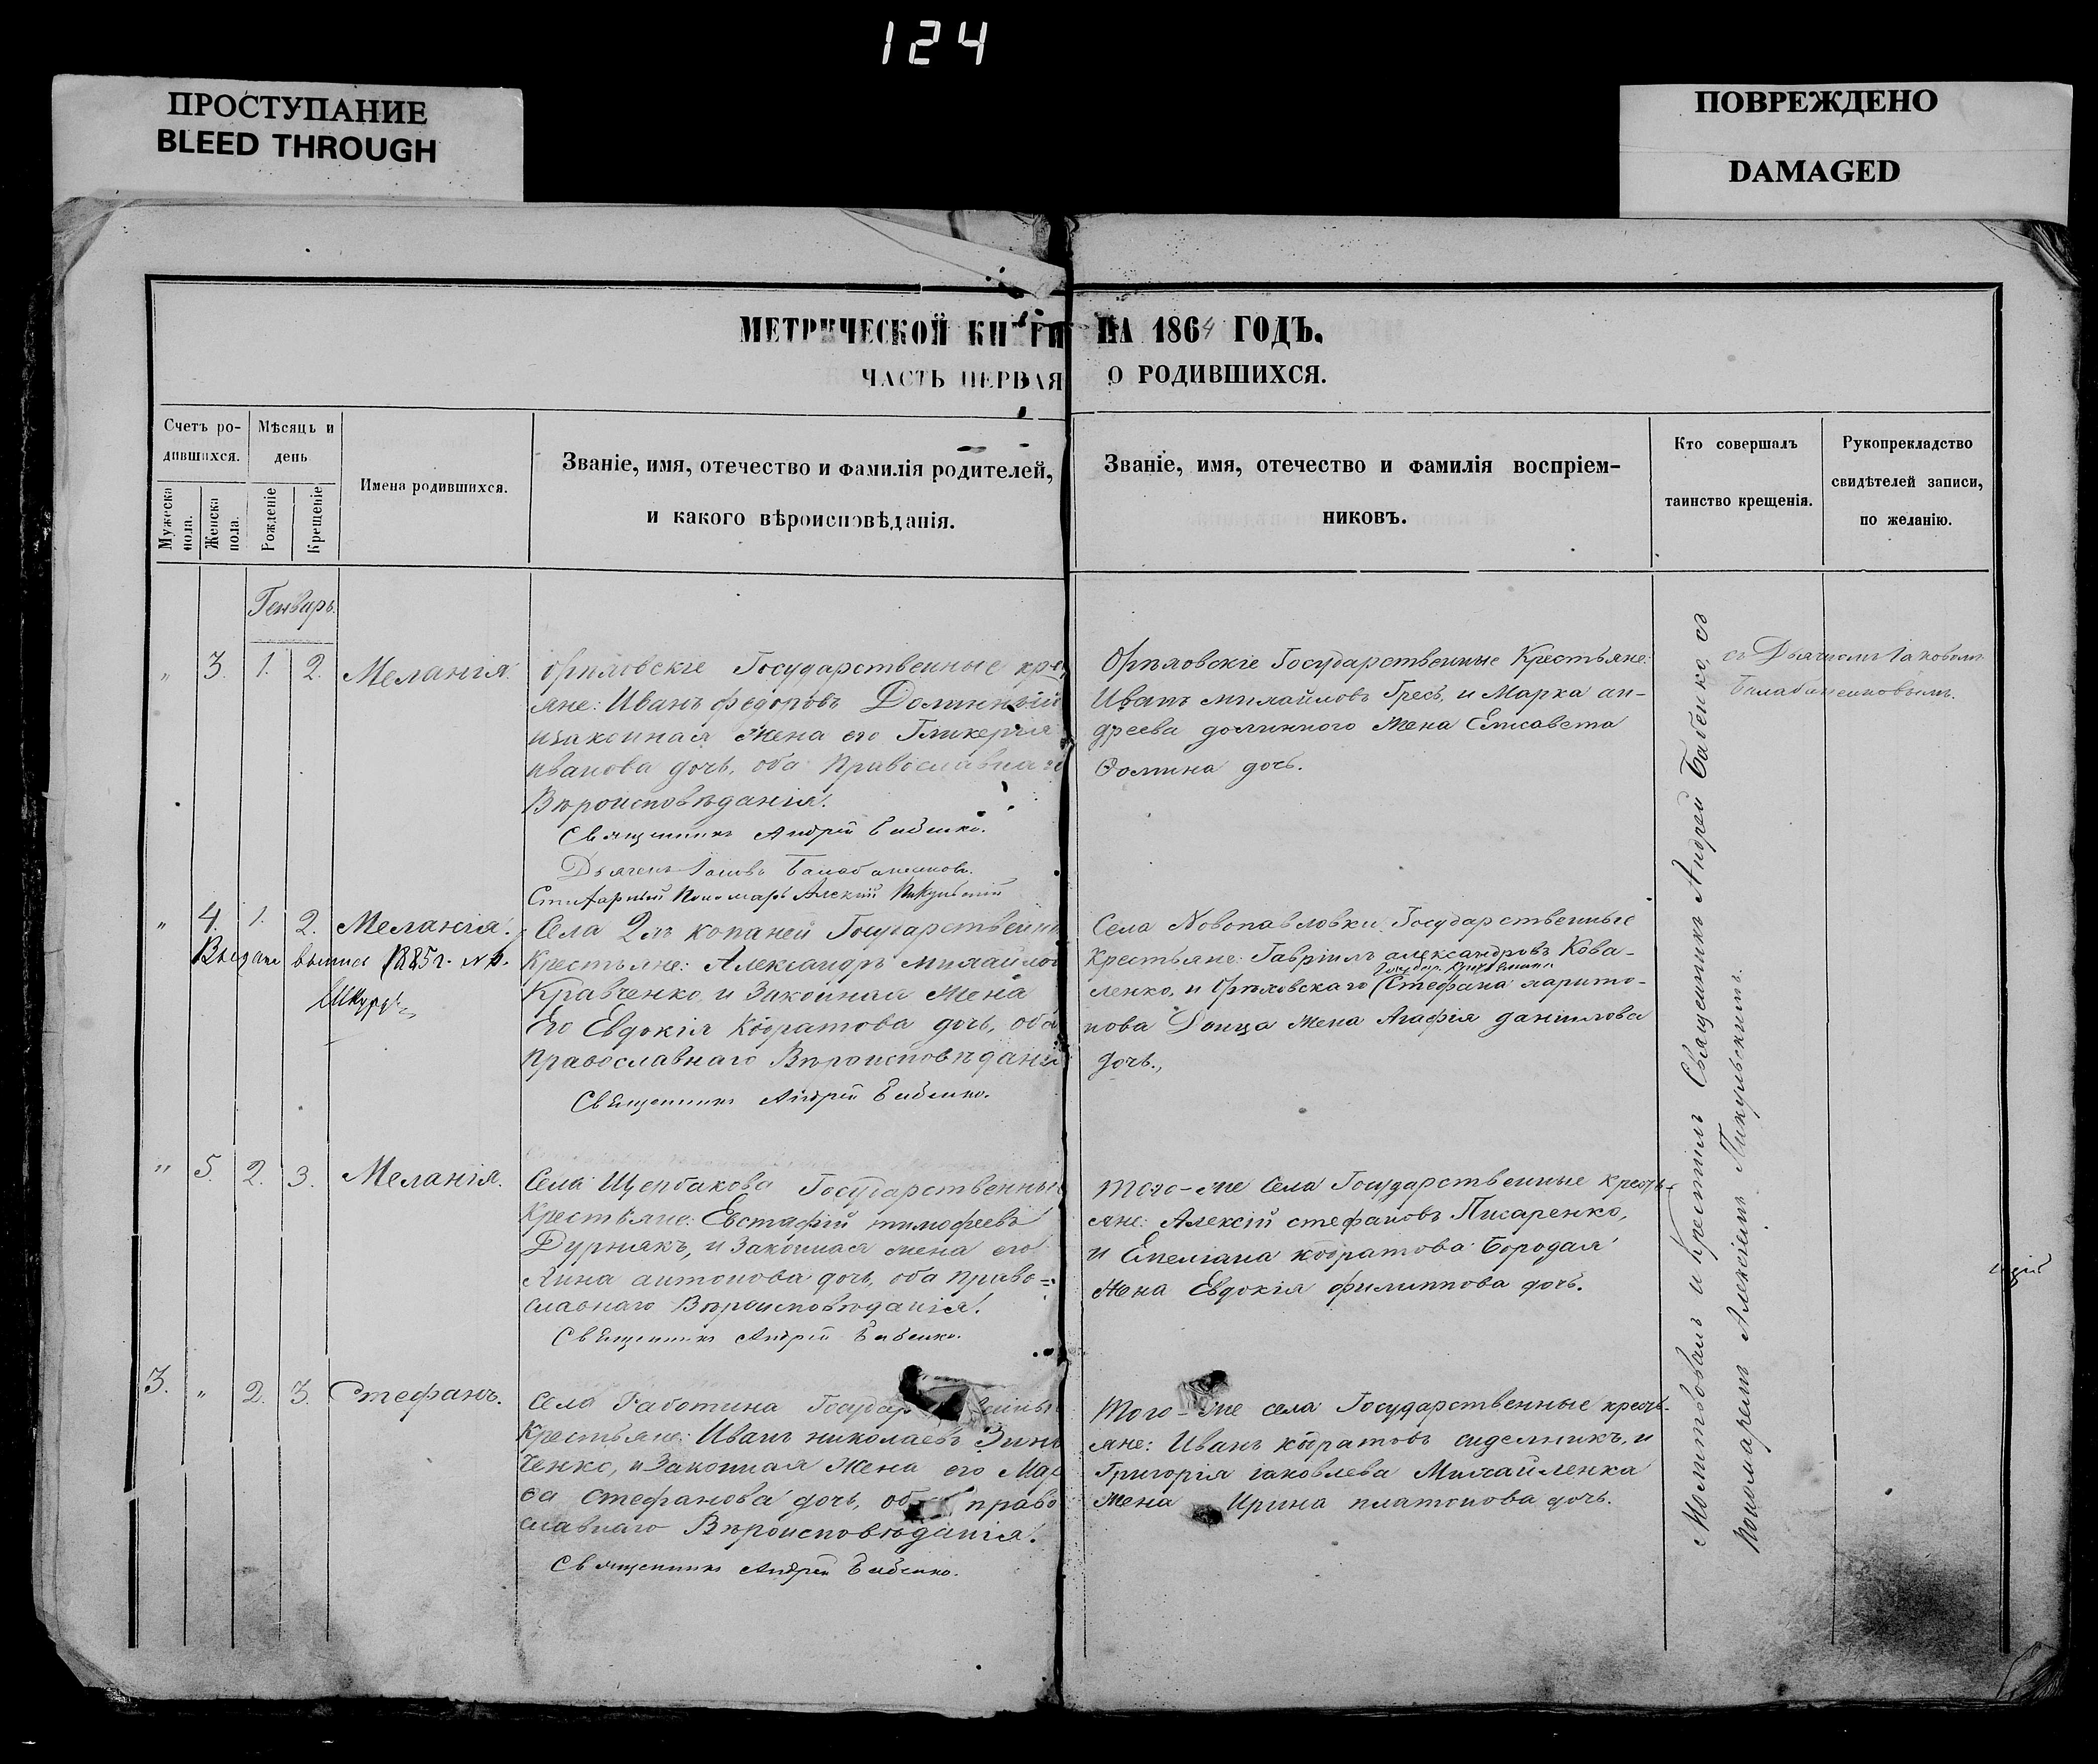 124
ПРОСТУПАНИЕ
BLEED THROUGH
ПОВРЕЖДЕНО
DAMAGED
МЕТРИЧЕСКОЙ КНИГИ НА 1864 ГОДЪ.
ЧАСТЬ ПЕРВАЯ О РОДИВШИХСЯ.
Счетъ ро-
дившихся.
Мужеска пола.
Женска пола.
Мѣсяць и
день
Рожденіе
Крещеніе
Имена родившихся.
Званіе, имя, отечество и фамилія родителей,
и какого вѣроисповѣданія.
Званіе, имя, отечество и фамилія воспріем-
никовъ.
Кто совершалъ
таинство крещенія.
Рукоприкладство
свидѣтелей записи,
по желанію.
Генварь.
" 3. 1. 2. Меланія.
Орѣховскіе Государственные кре
яне: Иванъ федоровъ Долинный
и законная жена его Гликерія
иванова дочь, оба Православнаго
Вѣроисповѣданія.
Священникъ Андрей Бабенко.
Дьячекъ Іаковъ
Пономарь Алексій Пикульскій
Орѣховскіе Государственные Крестьяне:
Иванъ михайловъ Гресь, и Марка ан-
дреева долинного жена Елисавета
Фомина дочь.
Молитвовалъ и крестилъ Священникъ Андрей Бабенко, съ
Пономаремъ Алексіемъ Пикульскимъ.
съ Дьячкомъ Іаковомъ
" 4. 1. 2. Меланія.
Выдана выпись 1885 г.
Села 2хъ копаней Государственны
Крестьяне: Александръ михайлов
Кравченко, и Законная жена
Его Евдокія кодратова дочь, оба
православнаго Вѣроисповѣдані
Священникъ Андрей Бабенко.
Села Новопавловки Государственные
крестьяне: Гавріилъ александровъ Кова-
ленко, и Орѣховскаго Стефана харито-
нова Донца жена Агафія даніилова
дочь.,
" 5. 2. 3. Меланія.
Села Щербакова Государственные
Крестьяне: Евстафій тимофеевъ
Дурнякъ, и Законная жена его
Анна антонова дочь, оба право=
славнаго Вѣроисповѣданія.
Священникъ Андрей Бабенко.
Того-же Села Государственные кресть-
яне: Алексій стефановъ Писаренко,
и Емеліана кодратова Бородая
жена Евдокія филиппова дочь.
3. " 2. 3. Стефанъ.
Села Работина Государ
Крестьяне: Иванъ николаевъ Зин
ченко, и Законная жена его Мар
фа стефанова дочь, об право
славнаго Вѣроисповѣданія.
Священникъ Андрей Бабенко.
Того-же села Государственные кресть-
яне: Иванъ кодратовъ сидельникъ, и
Григорія іаковлева Михайленка
жена Ирина платонова дочь.